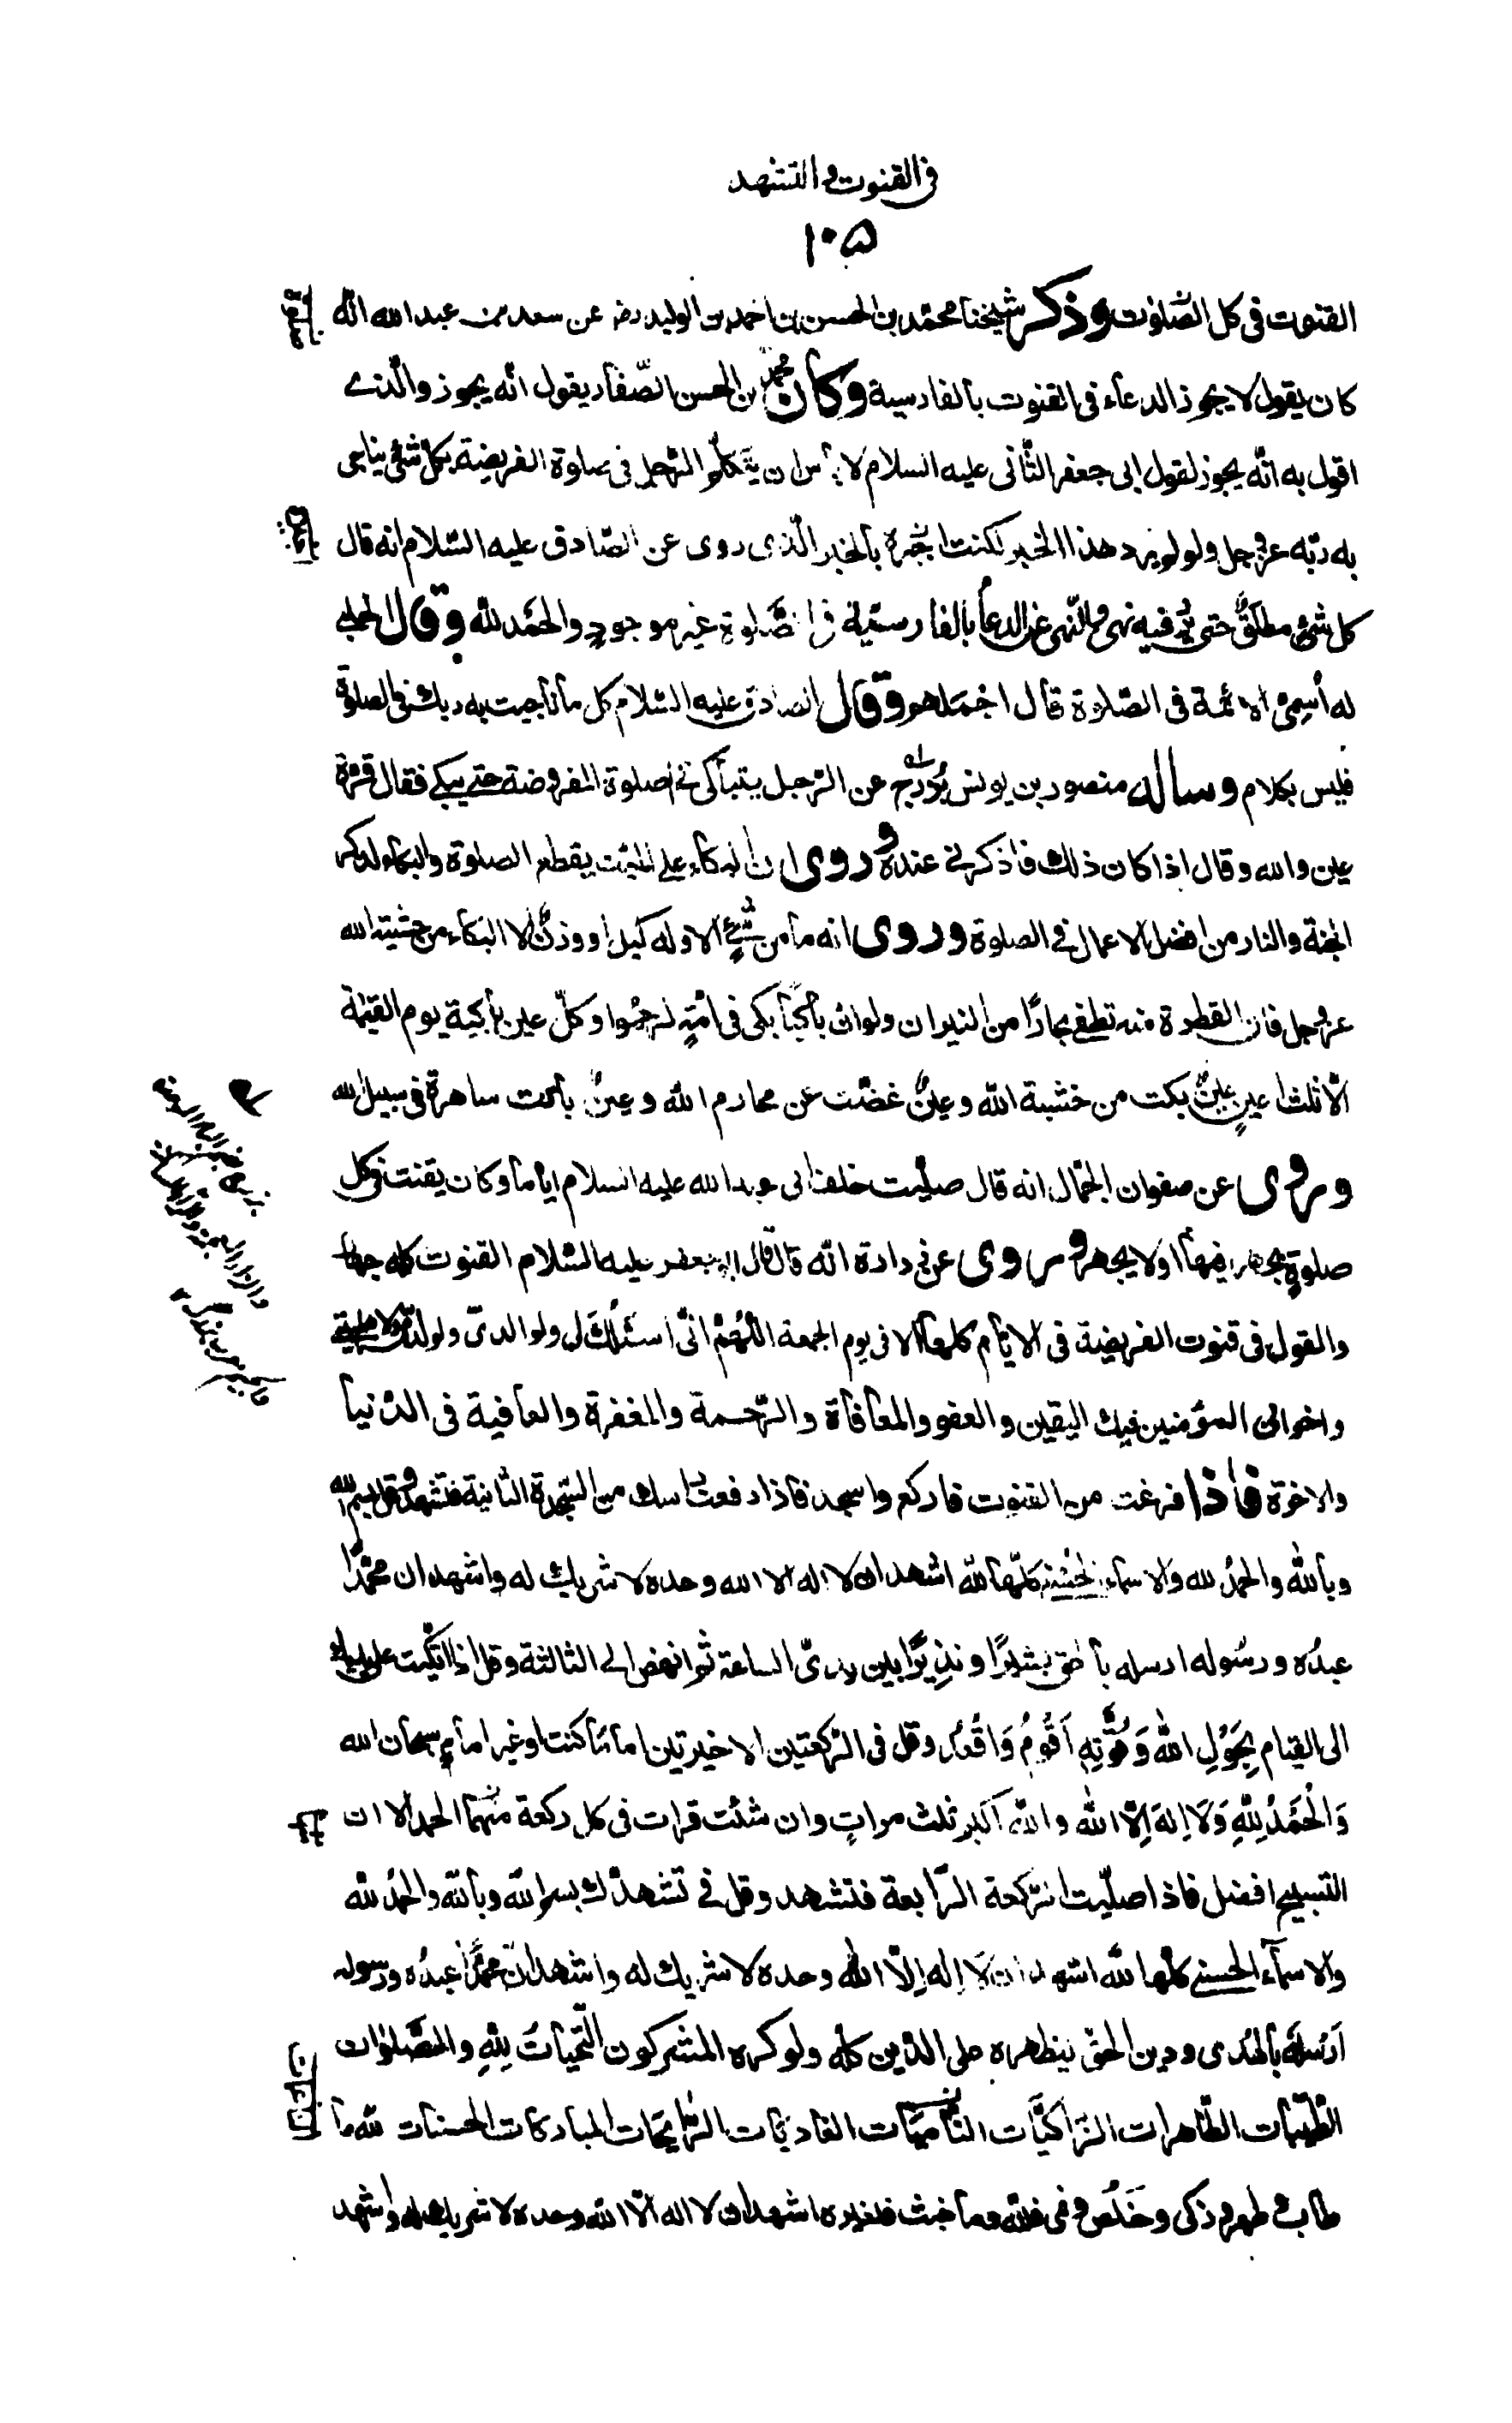 في القنوت و التشهد
١٠٥
القنوت في كل الصّلوات وذكر شيخنا محمّد بن الحسن بن احمد بن الوليد رض عن سعد بن عبد الله انّه
كان يقول لا يجوز الدعاء في القنوت بالفارسية وكان محمد بن الحسن الصّفار يقول انّه يجوز والّذي
اقول به انّه يجوز لقول ابي جعفر الثّاني عليه السلام لا باس ان يتكلّم الرّجل في صلوة الفريضة بكل شئ يناجي
به ربّه عزّ و جل ولو لم يرد هذا الخبر لكنت اجيزه بالخبر الّذي روى عن الصّادق عليه السّلام انه قال
كل شئ مطلق حتى يرد فيه نهى والنّهى عن الدعاء بالفارسيّة في الصّلوة غير موجود والحمد لله وقال الحلبي
له أسمّي الائمة في الصّلوة قال اجملهم وقال الصادق عليه السّلام كل ما ناجيت به ربك في الصلوة
فليس بكلام وساله منصور بن يونس بُزرج عن الرّجل يتباكى في الصلوة المفروضة حتى يبكي فقال قرّة
عين والله وقال اذا كان ذلك فاذكرني عنده وروى ان البكاء على الميّت يقطع الصلوة والبكاء لذكر
الجنة والنار من افضل الاعمال في الصلوة وروى انه ما من شئ الا وله كيل او وزن الا البكاء من خشية الله
عزّ و جل فان القطرة منه تطفي بحارًا من النيران ولو ان باكيًا بكى في امّةٍ لرحموا وكلّ عين باكية يوم القيمة
الّا ثلث اعينٍ عينٌ بكت من خشية الله وعينٌ غضّت عن محارم الله وعينٌ باتت ساهرة في سبيل الله
وروى عن صفوان الجمّال انه قال صلّيت خلف ابي عبد الله عليه السلام ايّاما وكان يقنت في كل
صلوةٍ يجهر فيها او لا يجهر وروى عن زرارة انّه قال قال ابو جعفر عليه السّلام القنوت كله جهار
والقول في قنوت الفريضة في الايّام كلها الا في يوم الجمعة اللّهُمّ انّي اسئلك لي ولوالديّ ولولدي ولاهل بيتي
واخواني المؤمنين فيك اليقين والعفو والمعافاة والرّحمة والمغفرة والعافية في الدّنيا
والاخرة فاذا فرغت من القنوت فاركع واسجد فاذا رفعت راسك من السّجدة الثانية فتشهد وقل بسم الله
وبالله والحمدُ لله والاسماء الحسنى كلّها لله اشهد ان لا اله الا الله وحده لا شريك له واشهد ان محمّدًا
عبدُه ورسُوله ارسله بالحق بشيرًا ونذيرًا بين يديّ الساعة ثم انهض الى الثالثة وقل اذا اتّكيت على يديك
الى القيام بِحَوْلِ اللهِ وَقُوَّتِهِ اَقُومُ وَاقْعُد وقل في الرّكعتين الاخيرتين اماما كنت او غير امامٍ سبحان الله
وَالْحَمْدُ لِلّهِ وَلَا اِلهَ اِلّا الله والله اكبر ثلث مراتٍ وان شئت قرات في كل ركعة منهما الحمد الا ان
التسبيح افضل فاذا صلّيت الرّكعة الرّابعة فتشهد وقل في تشهدك بسم الله وبالله والحمدُ لله
والاسمآء الحسنى كلها لله اشهد ان لا اِله اِلّا الله وحده لا شريك له واشهد انّ محمّدًا عبدُه ورسوله
اَرْسَلَهُ بالهُدى ودين الحقّ ليظهره على الدّين كله ولو كره المشركون التّحياتُ لِلّهِ والصّلوات
الطّيبات الطّاهرات الزّاكيّات النّاميات الغاديات الرّايحات المباركات الحسنات لله ما
طاب وطهر وزكى وخَلُصَ ونمى فلله وما خبث فلغيره اشهد ان لا اله الّا الله وحده لا شريك له واشهد